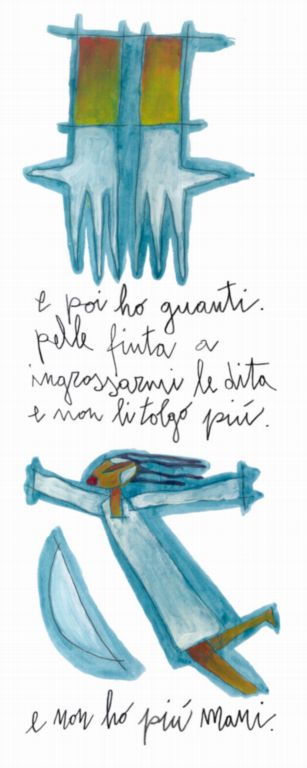 e poi ho guanti.
pelle finta a
ingrossarmi le dita
e non li tolgo più.
e non ho più mani.